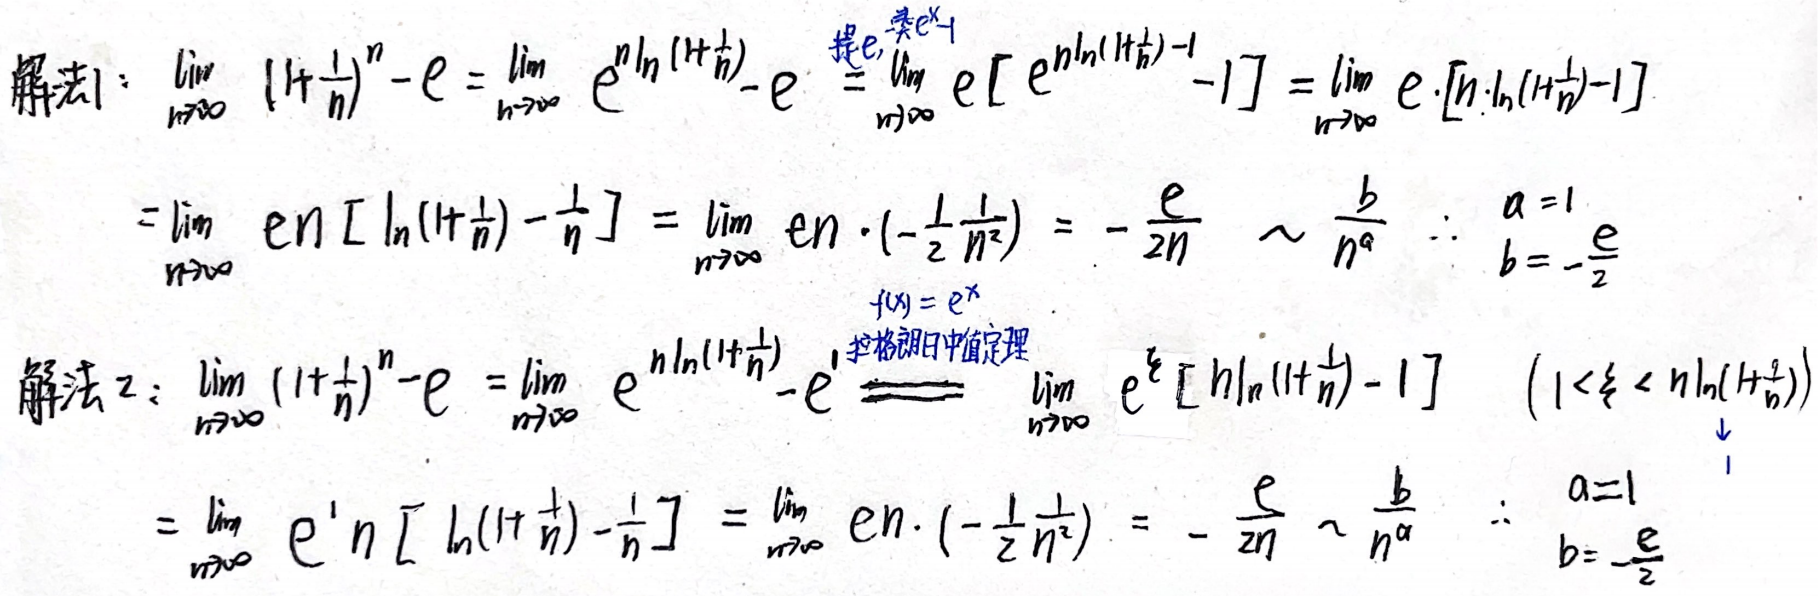 提e,凑e^x-1
解法1: lim_{n→∞} (1+1/n)^n - e = lim_{n→∞} e^{n ln(1+1/n)} - e = lim_{n→∞} e[e^{n ln(1+1/n)-1} - 1] = lim_{n→∞} e·[n·ln(1+1/n)-1]
= lim_{n→∞} en[ln(1+1/n) - 1/n] = lim_{n→∞} en·(-1/2 1/n²) = -e/2n ~ b/n^a ∴ a=1 b=-e/2
f(x)=e^x
拉格朗日中值定理
解法2: lim_{n→∞} (1+1/n)^n - e = lim_{n→∞} e^{n ln(1+1/n)} - e^1 = lim_{n→∞} e^ξ[n ln(1+1/n)-1] (1<ξ<n ln(1+1/n))
↓
1
= lim_{n→∞} e^1 n[ln(1+1/n) - 1/n] = lim_{n→∞} en·(-1/2 1/n²) = -e/2n ~ b/n^a ∴ a=1 b=-e/2